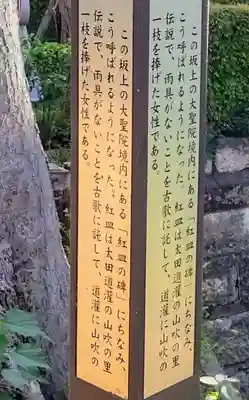 この坂上の大聖院境内にある「紅皿の碑」にちなみ、
こう呼ばれるようになった。紅皿は太田道灌の山吹の里
伝説で、雨具がないことを古歌に託して、道灌に山吹の
一枝を捧げた女性である。
この坂上の大聖院境内にある「紅皿の碑」にちなみ、
こう呼ばれるようになった。紅皿は太田道灌の山吹の里
伝説で、雨具がないことを古歌に託して、道灌に山吹の
一枝を捧げた女性である。